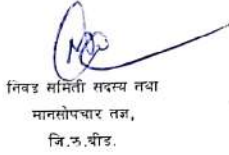 निवड समिती सदस्य तथा
मानसोपचार तज्ञ,
जि.रु.बीड.